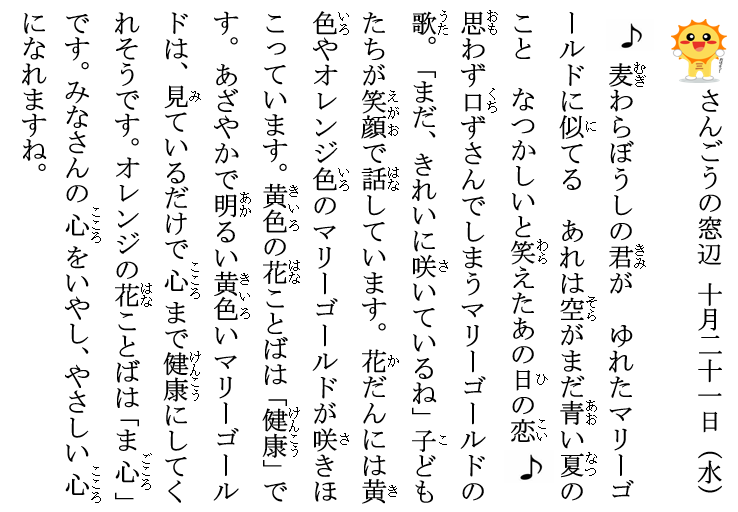 さんごうの窓辺　十月二十一日（水）
♪麦わらぼうしの君が　ゆれたマリーゴ
ールドに似てる　あれは空がまだ青い夏の
こと　なつかしいと笑えたあの日の恋♪
思わず口ずさんでしまうマリーゴールドの
歌。「まだ、きれいに咲いているね」子ども
たちが笑顔で話しています。花だんには黄
色やオレンジ色のマリーゴールドが咲きほ
こっています。黄色の花ことばは「健康」で
す。あざやかで明るい黄色いマリーゴール
ドは、見ているだけで心まで健康にしてく
れそうです。オレンジの花ことばは「ま心」
です。みなさんの心をいやし、やさしい心
になれますね。